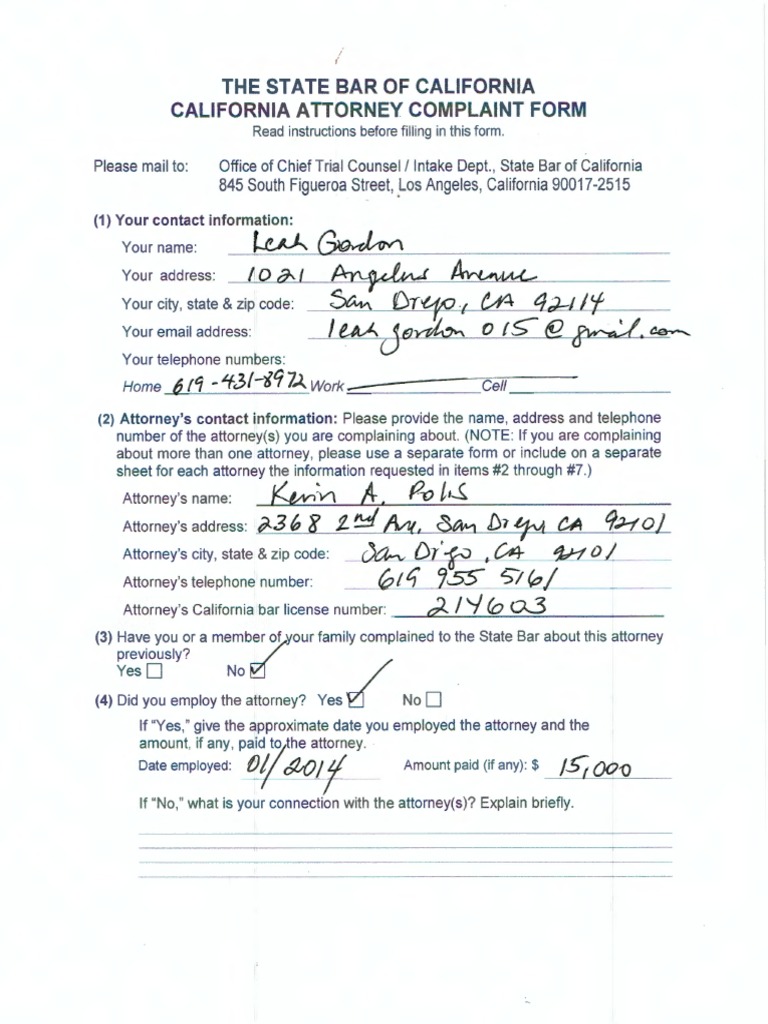 THE STATE BAR OF CALIFORNIA
CALIFORNIA ATTORNEY COMPLAINT FORM
Read instructions before filling in this form.
Please mail to: Office of Chief Trial Counsel / Intake Dept., State Bar of California
845 South Figueroa Street, Los Angeles, California 90017-2515
(1) Your contact information:
Your name: Leah Gordon
Your address: 1021 Angelus Avenue
Your city, state & zip code: San Diego, CA 92114
Your email address: leahgordon015@gmail.com
Your telephone numbers:
Home 619-431-8972 Work Cell
(2) Attorney's contact information: Please provide the name, address and telephone
number of the attorney(s) you are complaining about. (NOTE: If you are complaining
about more than one attorney, please use a separate form or include on a separate
sheet for each attorney the information requested in items #2 through #7.)
Attorney's name: Kevin A. Polis
Attorney's address: 2368 2nd Av, San Diego CA 92101
Attorney's city, state & zip code: San Digo, CA 92101
Attorney's telephone number: 619 955 5161
Attorney's California bar license number: 214603
(3) Have you or a member of your family complained to the State Bar about this attorney
previously?
Yes No
(4) Did you employ the attorney? Yes No
If "Yes," give the approximate date you employed the attorney and the
amount, if any, paid to the attorney.
Date employed: 01/2014 Amount paid (if any): $ 15,000
If "No," what is your connection with the attorney(s)? Explain briefly.